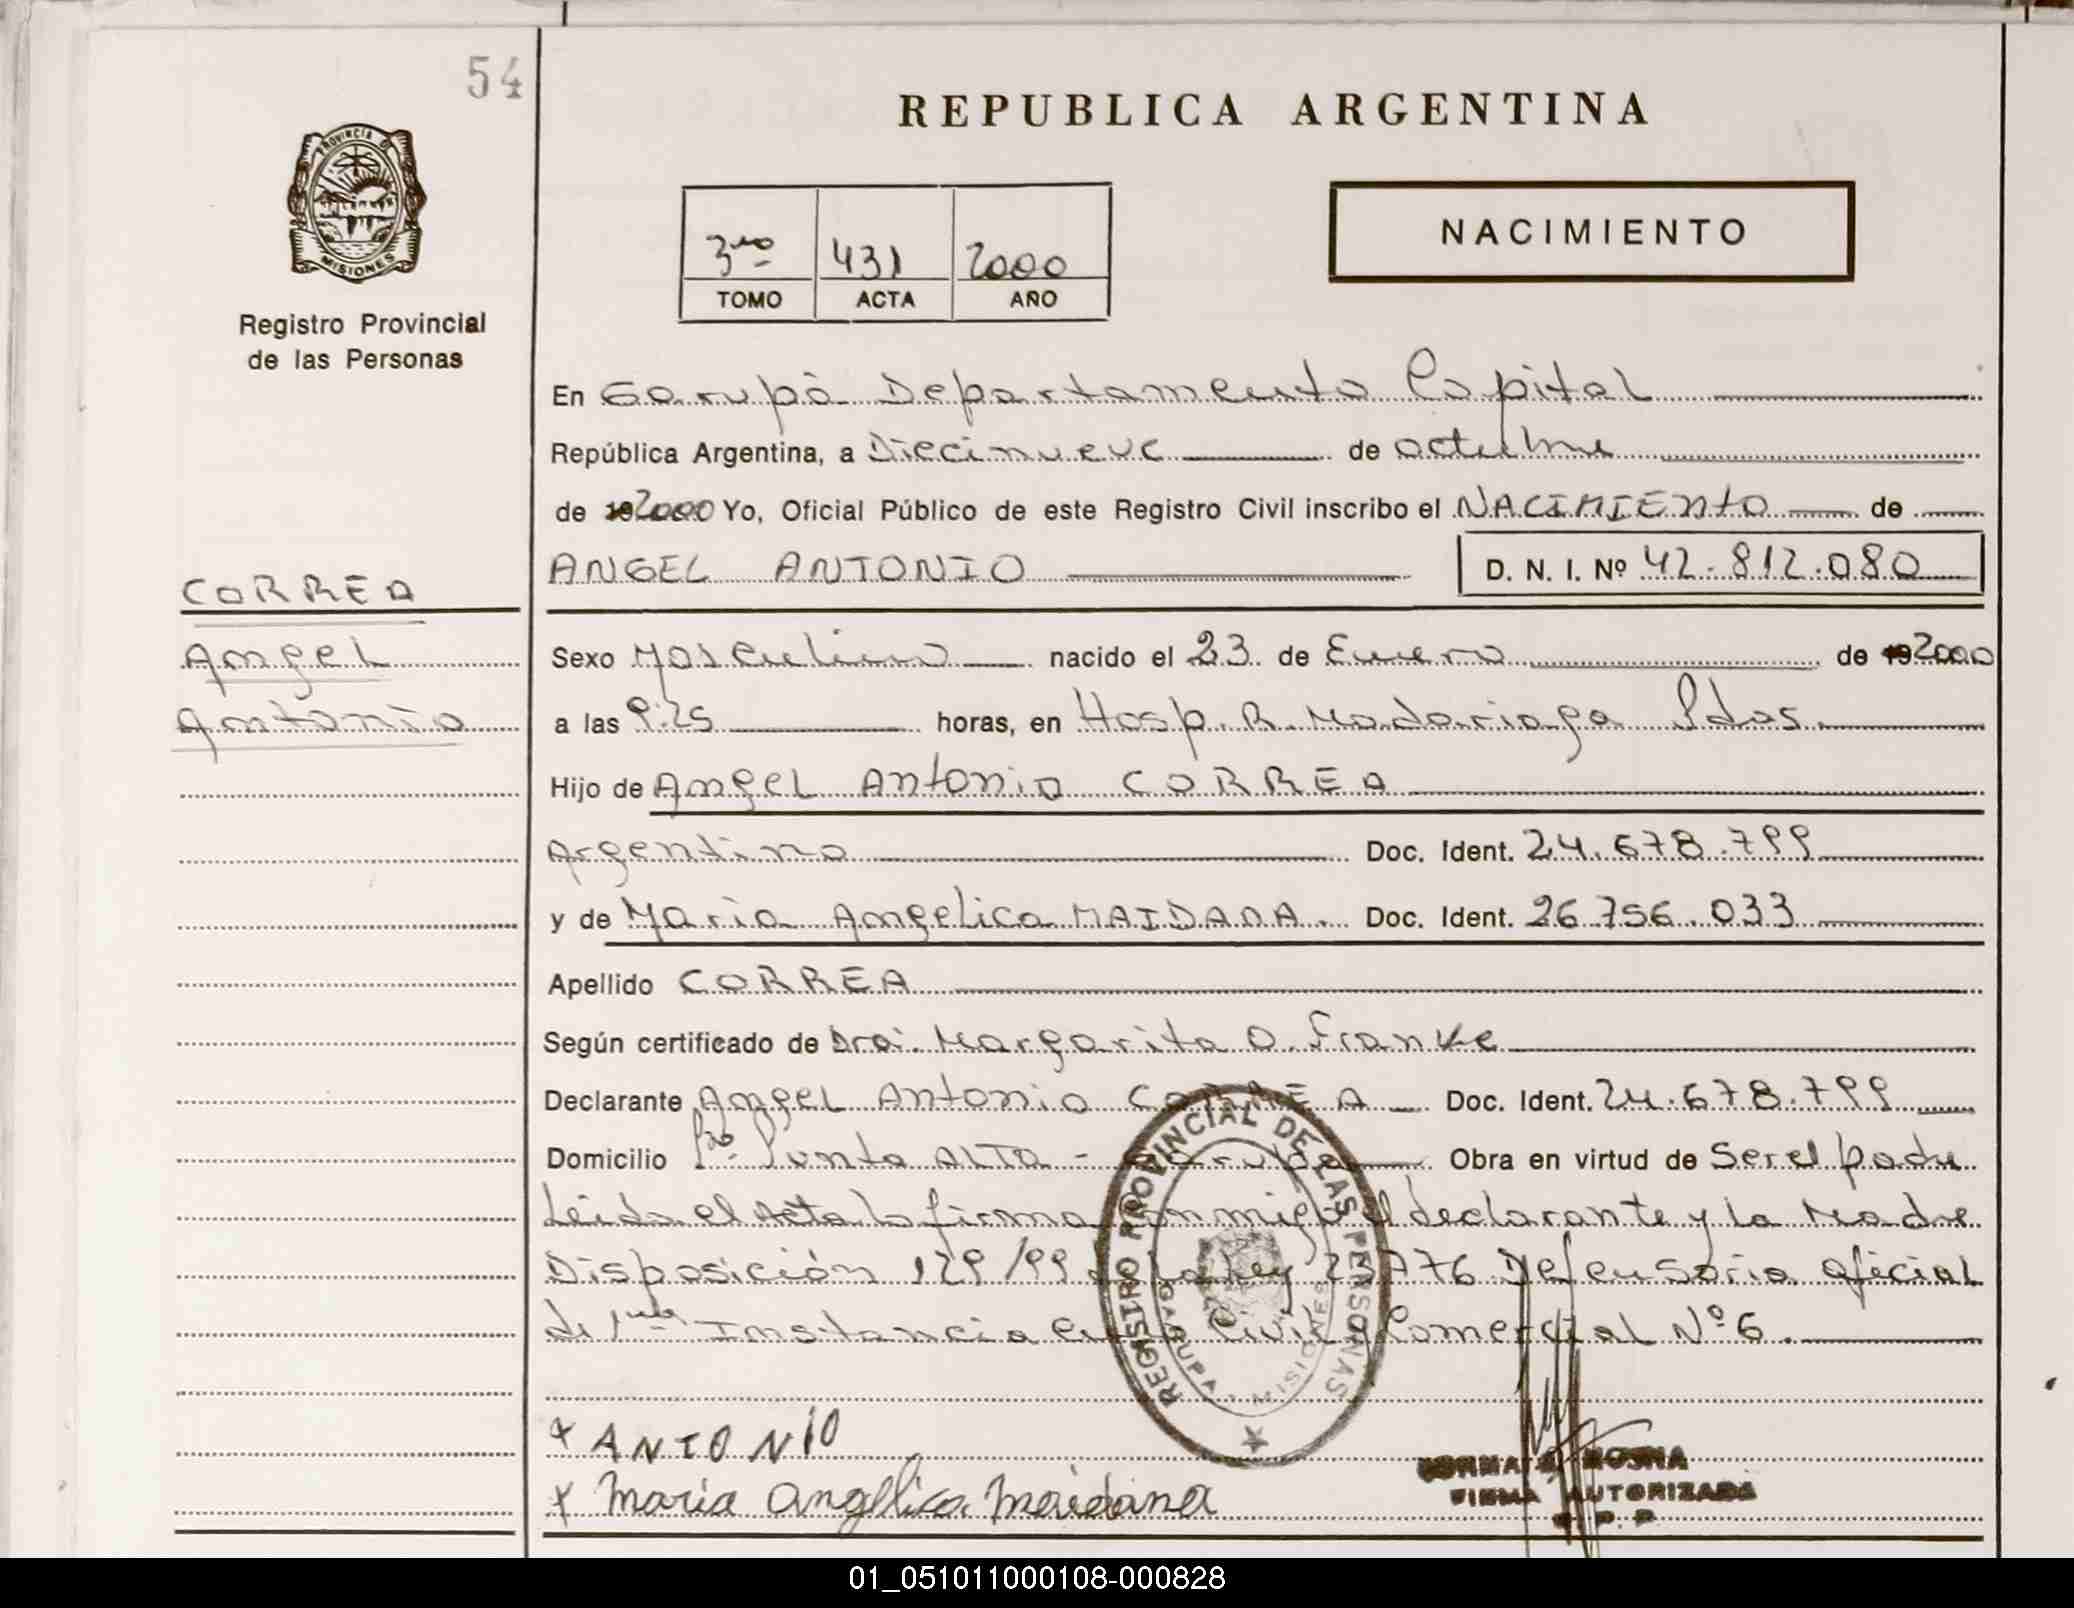 54
REPUBLICA ARGENTINA
PROVINCIA D MISIONES
Registro Provincial
de las Personas
3ro 431 2000
TOMO ACTA AÑO
NACIMIENTO
En Garupá Departamento Capital
República Argentina, a Diecinueve de octubre
de 192000 Yo, Oficial Público de este Registro Civil inscribo el NACIMIENTO de
ANGEL ANTONIO D. N. I. Nº 42.812.080
CORREA
Angel
Antonio
Sexo Masculino nacido el 23 de Enero de 192000
a las 9:25 horas, en Hosp. R. Madariaga Pdas.
Hijo de Angel Antonio CORREA
Argentino Doc. Ident. 24.678.799
y de Maria Angelica MAIDANA. Doc. Ident. 26.756.033
Apellido CORREA
Según certificado de Dra. Margarita O. Franke
Declarante Angel Antonio CORREA Doc. Ident. 24.678.799
Domicilio Bº Punta ALTA - Garupá Obra en virtud de Ser el padre
Leida el Acta la firma conmigo el declarante y la Madre
Disposición 129/99 Ley 23776 Defensoria Oficial
de 1ra Instancia en lo Civil y Comercial Nº 6.
REGISTRO PROVINCIAL DE LAS PERSONAS
GARUPA - MISIONES
x ANTONIO
x Maria Angelica Maidana
FIRMA AUTORIZADA
R. P. P.
01_051011000108-000828